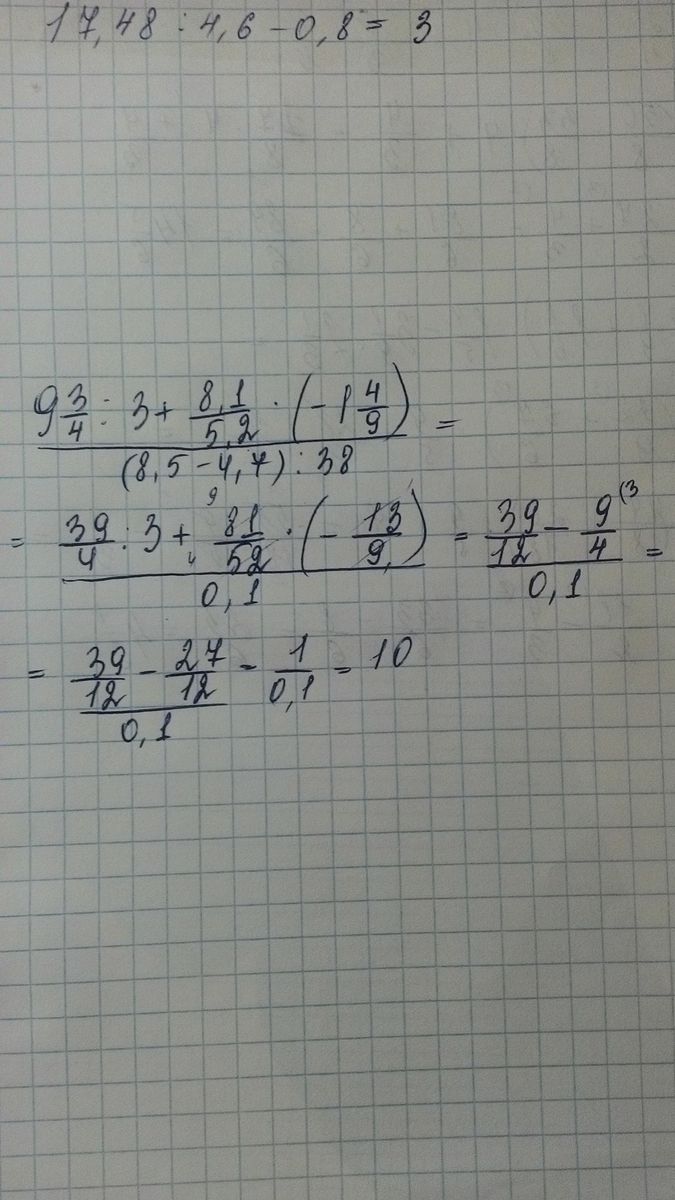 17,48 : 4,6 - 0,8 = 3
9 3/4 : 3 + 8,1/5,2 · (- 1 4/9) =
(8,5 - 4,7) : 38
= 39/4 : 3 + 81/52 · (- 13/9) = 39/12 - 9/4 (3 =
0,1 0,1
= 39/12 - 27/12 = 1/0,1 = 10
0,1